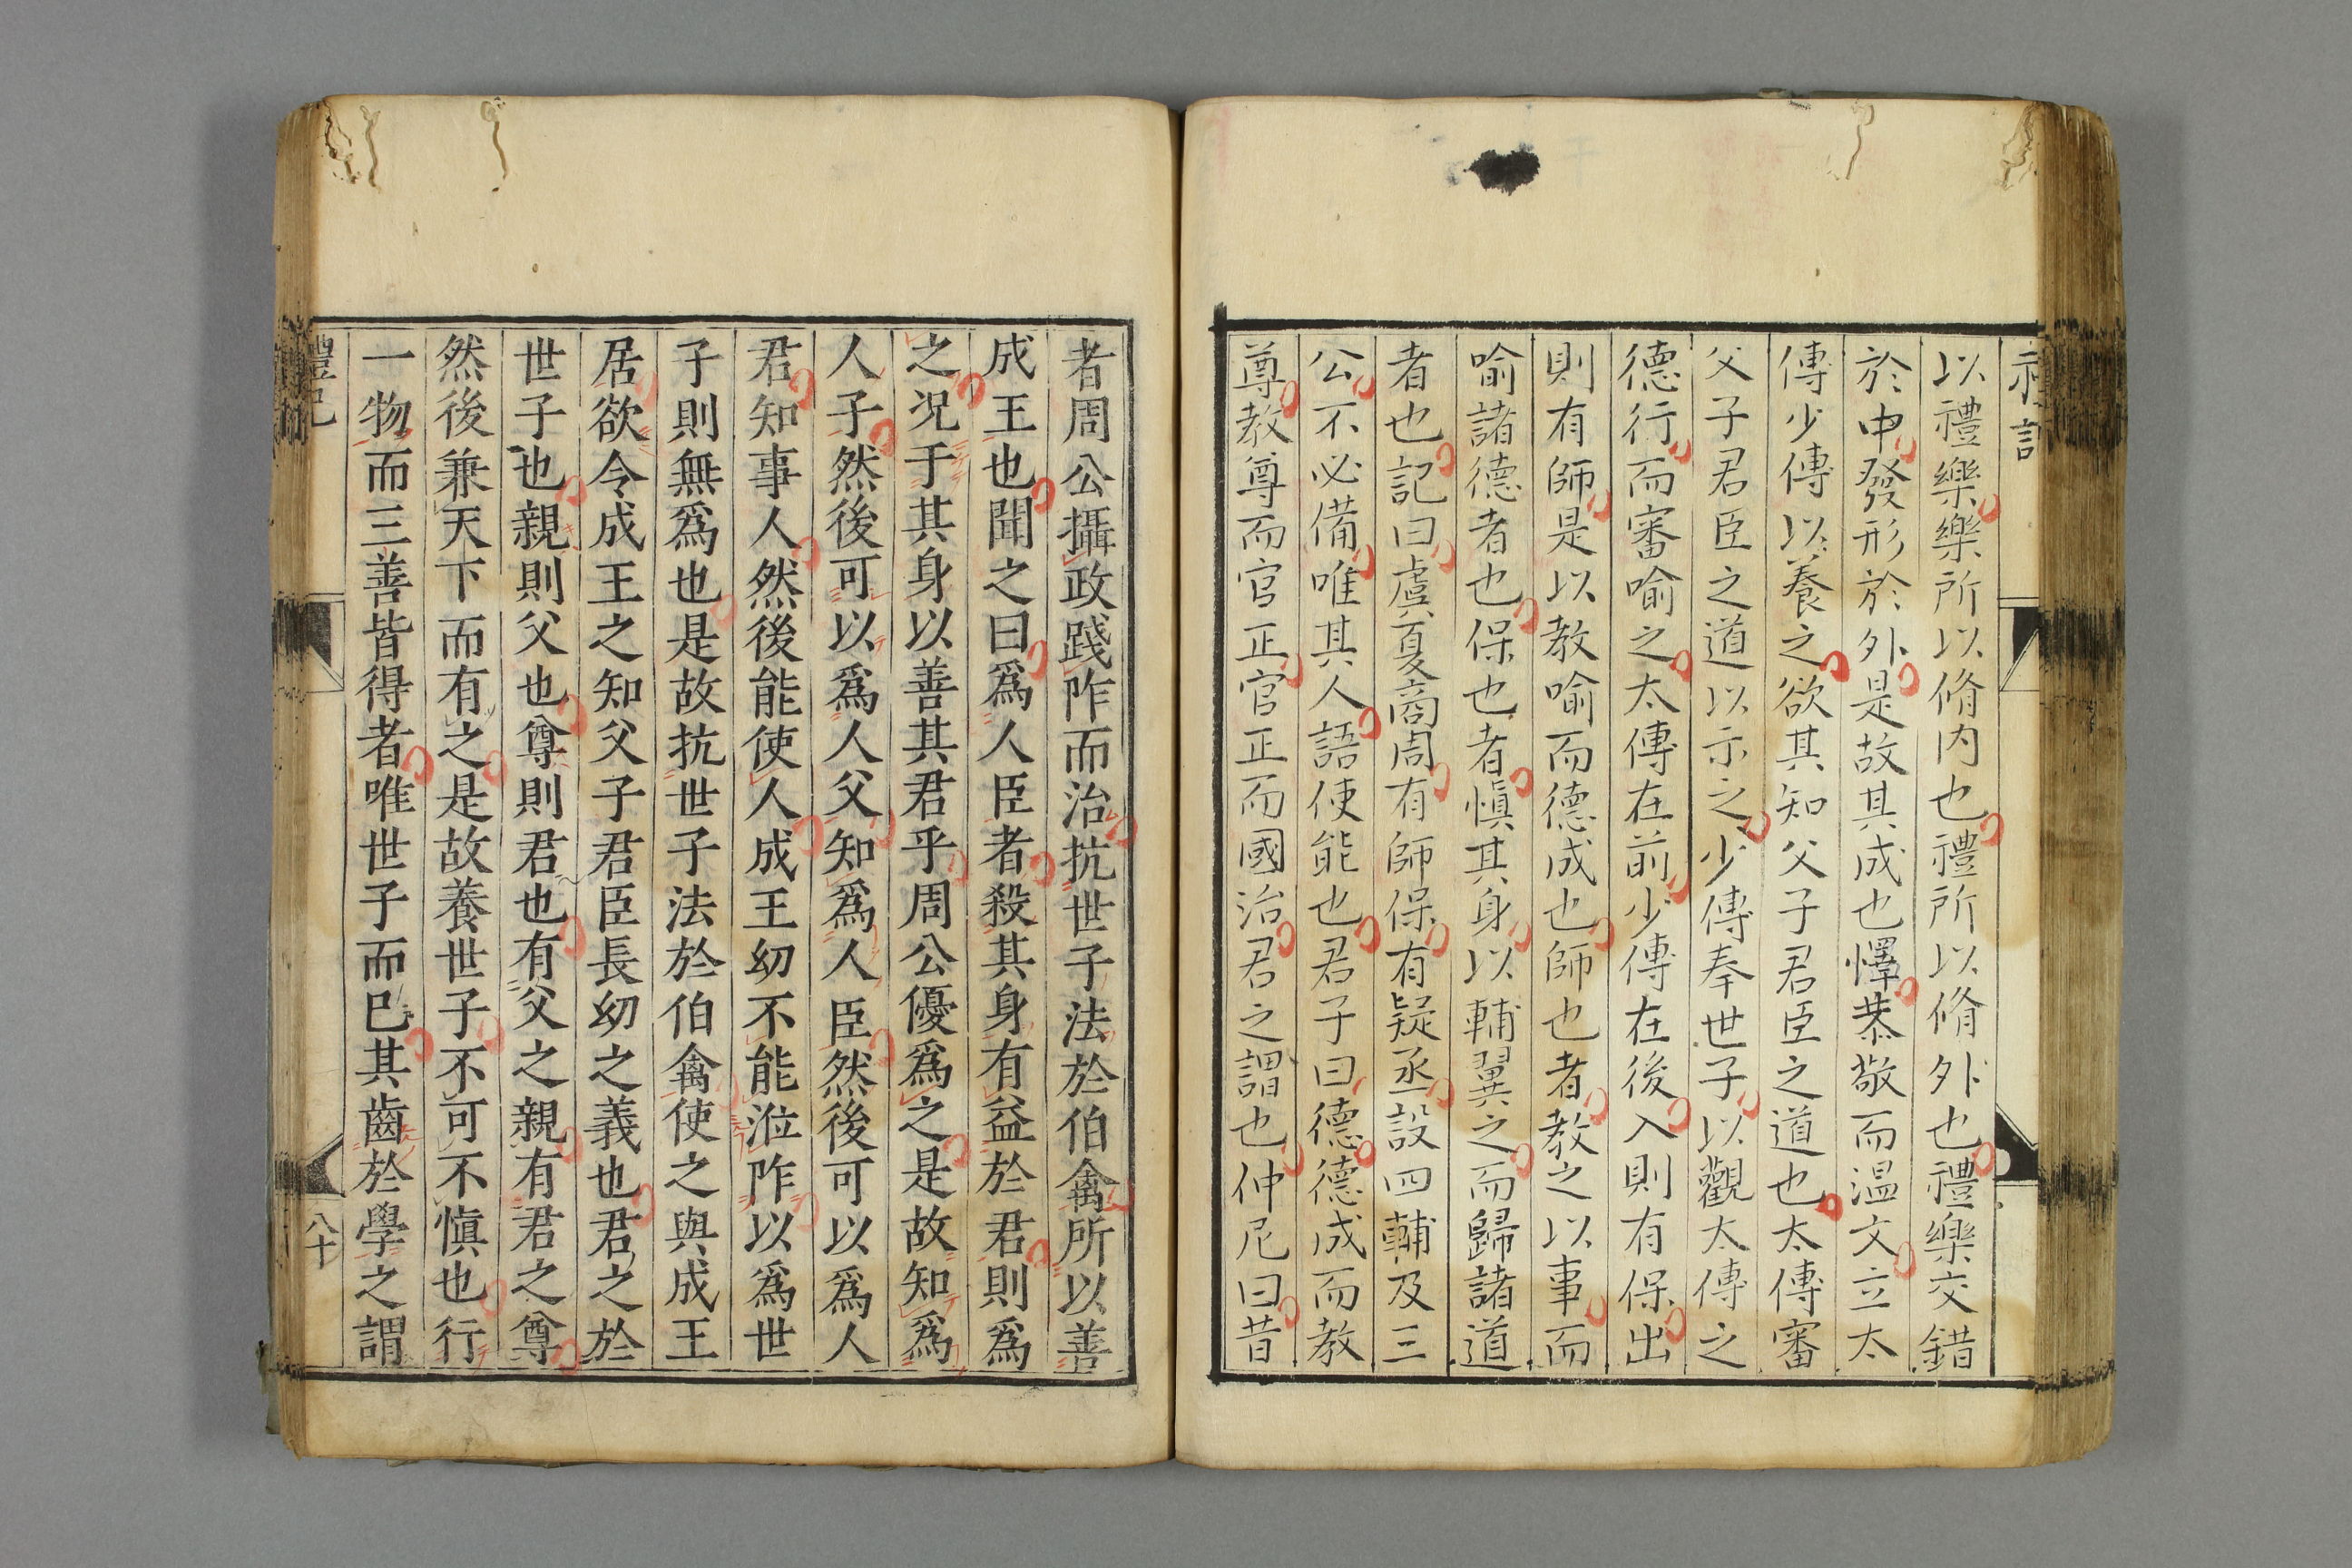 以禮樂樂所以脩内也禮所以脩外也禮樂交錯
於中發形於外是故其成也懌恭敬而温文立太
傅少傅以養之欲其知父子君臣之道也太傅審
父子君臣之道以示之少傅奉世子以觀太傅之
德行而審喻之太傅在前少傅在後入則有保出
則有師是以教喻而德成也師也者教之以事而
喻諸德者也保也者慎其身以輔翼之而歸諸道
者也記曰虞夏商周有師保有疑丞設四輔及三
公不必備唯其人語使能也君子曰德德成而教
尊教尊而官正官正而國治君之謂也仲尼曰昔
者周公攝政踐阼而治抗世子法於伯禽所以善
成王也聞之曰爲人臣者殺其身有益於君則爲
之况于其身以善其君乎周公優爲之是故知爲
人子然後可以爲人父知爲人臣然後可以爲人
君知事人然後能使人成王幼不能涖阼以爲世
子則無爲也是故抗世子法於伯禽使之與成王
居欲令成王之知父子君臣長幼之義也君之於
世子也親則父也尊則君也有父之親有君之尊
然後兼天下而有之是故養世子不可不慎也行
一物而三善皆得者唯世子而已其齒於學之謂
禮記
八十